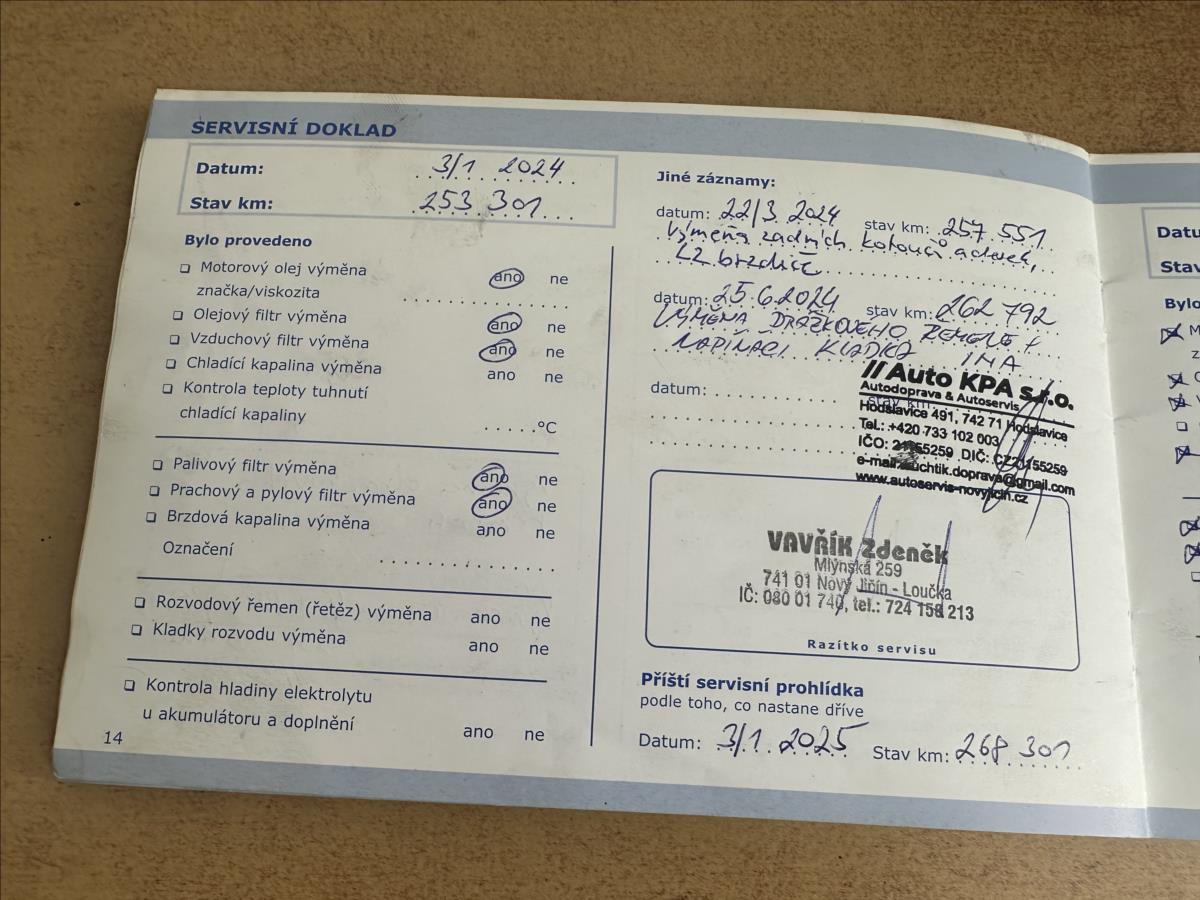 SERVISNÍ DOKLAD
Datum: 3/1 2024
Stav km: 253 301
Bylo provedeno
Motorový olej výměna ano ne
značka/viskozita
Olejový filtr výměna ano ne
Vzduchový filtr výměna ano ne
Chladící kapalina výměna ano ne
Kontrola teploty tuhnutí
chladící kapaliny °C
Palivový filtr výměna ano ne
Prachový a pylový filtr výměna ano ne
Brzdová kapalina výměna ano ne
Označení
Rozvodový řemen (řetěz) výměna ano ne
Kladky rozvodu výměna ano ne
Kontrola hladiny elektrolytu
u akumulátoru a doplnění ano ne
14
Jiné záznamy:
datum: 22/3 2024 stav km: 257 551
výměna zadních kotoučů a desek,
LZ brzdič
datum: 25.6.2024 stav km: 262 792
VÝMĚNA DRÁŽKOVÉHO ŘEMENE +
NAPÍNACÍ KLADKA INA
datum: stav km:
// Auto KPA s.r.o.
Autodoprava & Autoservis
Hodslavice 491, 742 71 Hodslavice
Tel.: +420 733 102 003
IČO: DIČ:
www.autoservis-novyjicin.cz
VAVŘÍK Zdeněk
Mlýnská 259
741 01 Nový Jičín - Loučka
IČ: 080 01 740, tel.: 724 158 213
Razítko servisu
Příští servisní prohlídka
podle toho, co nastane dříve
Datum: 3/1 2025 Stav km: 268 301
Datu
Stav
Bylo